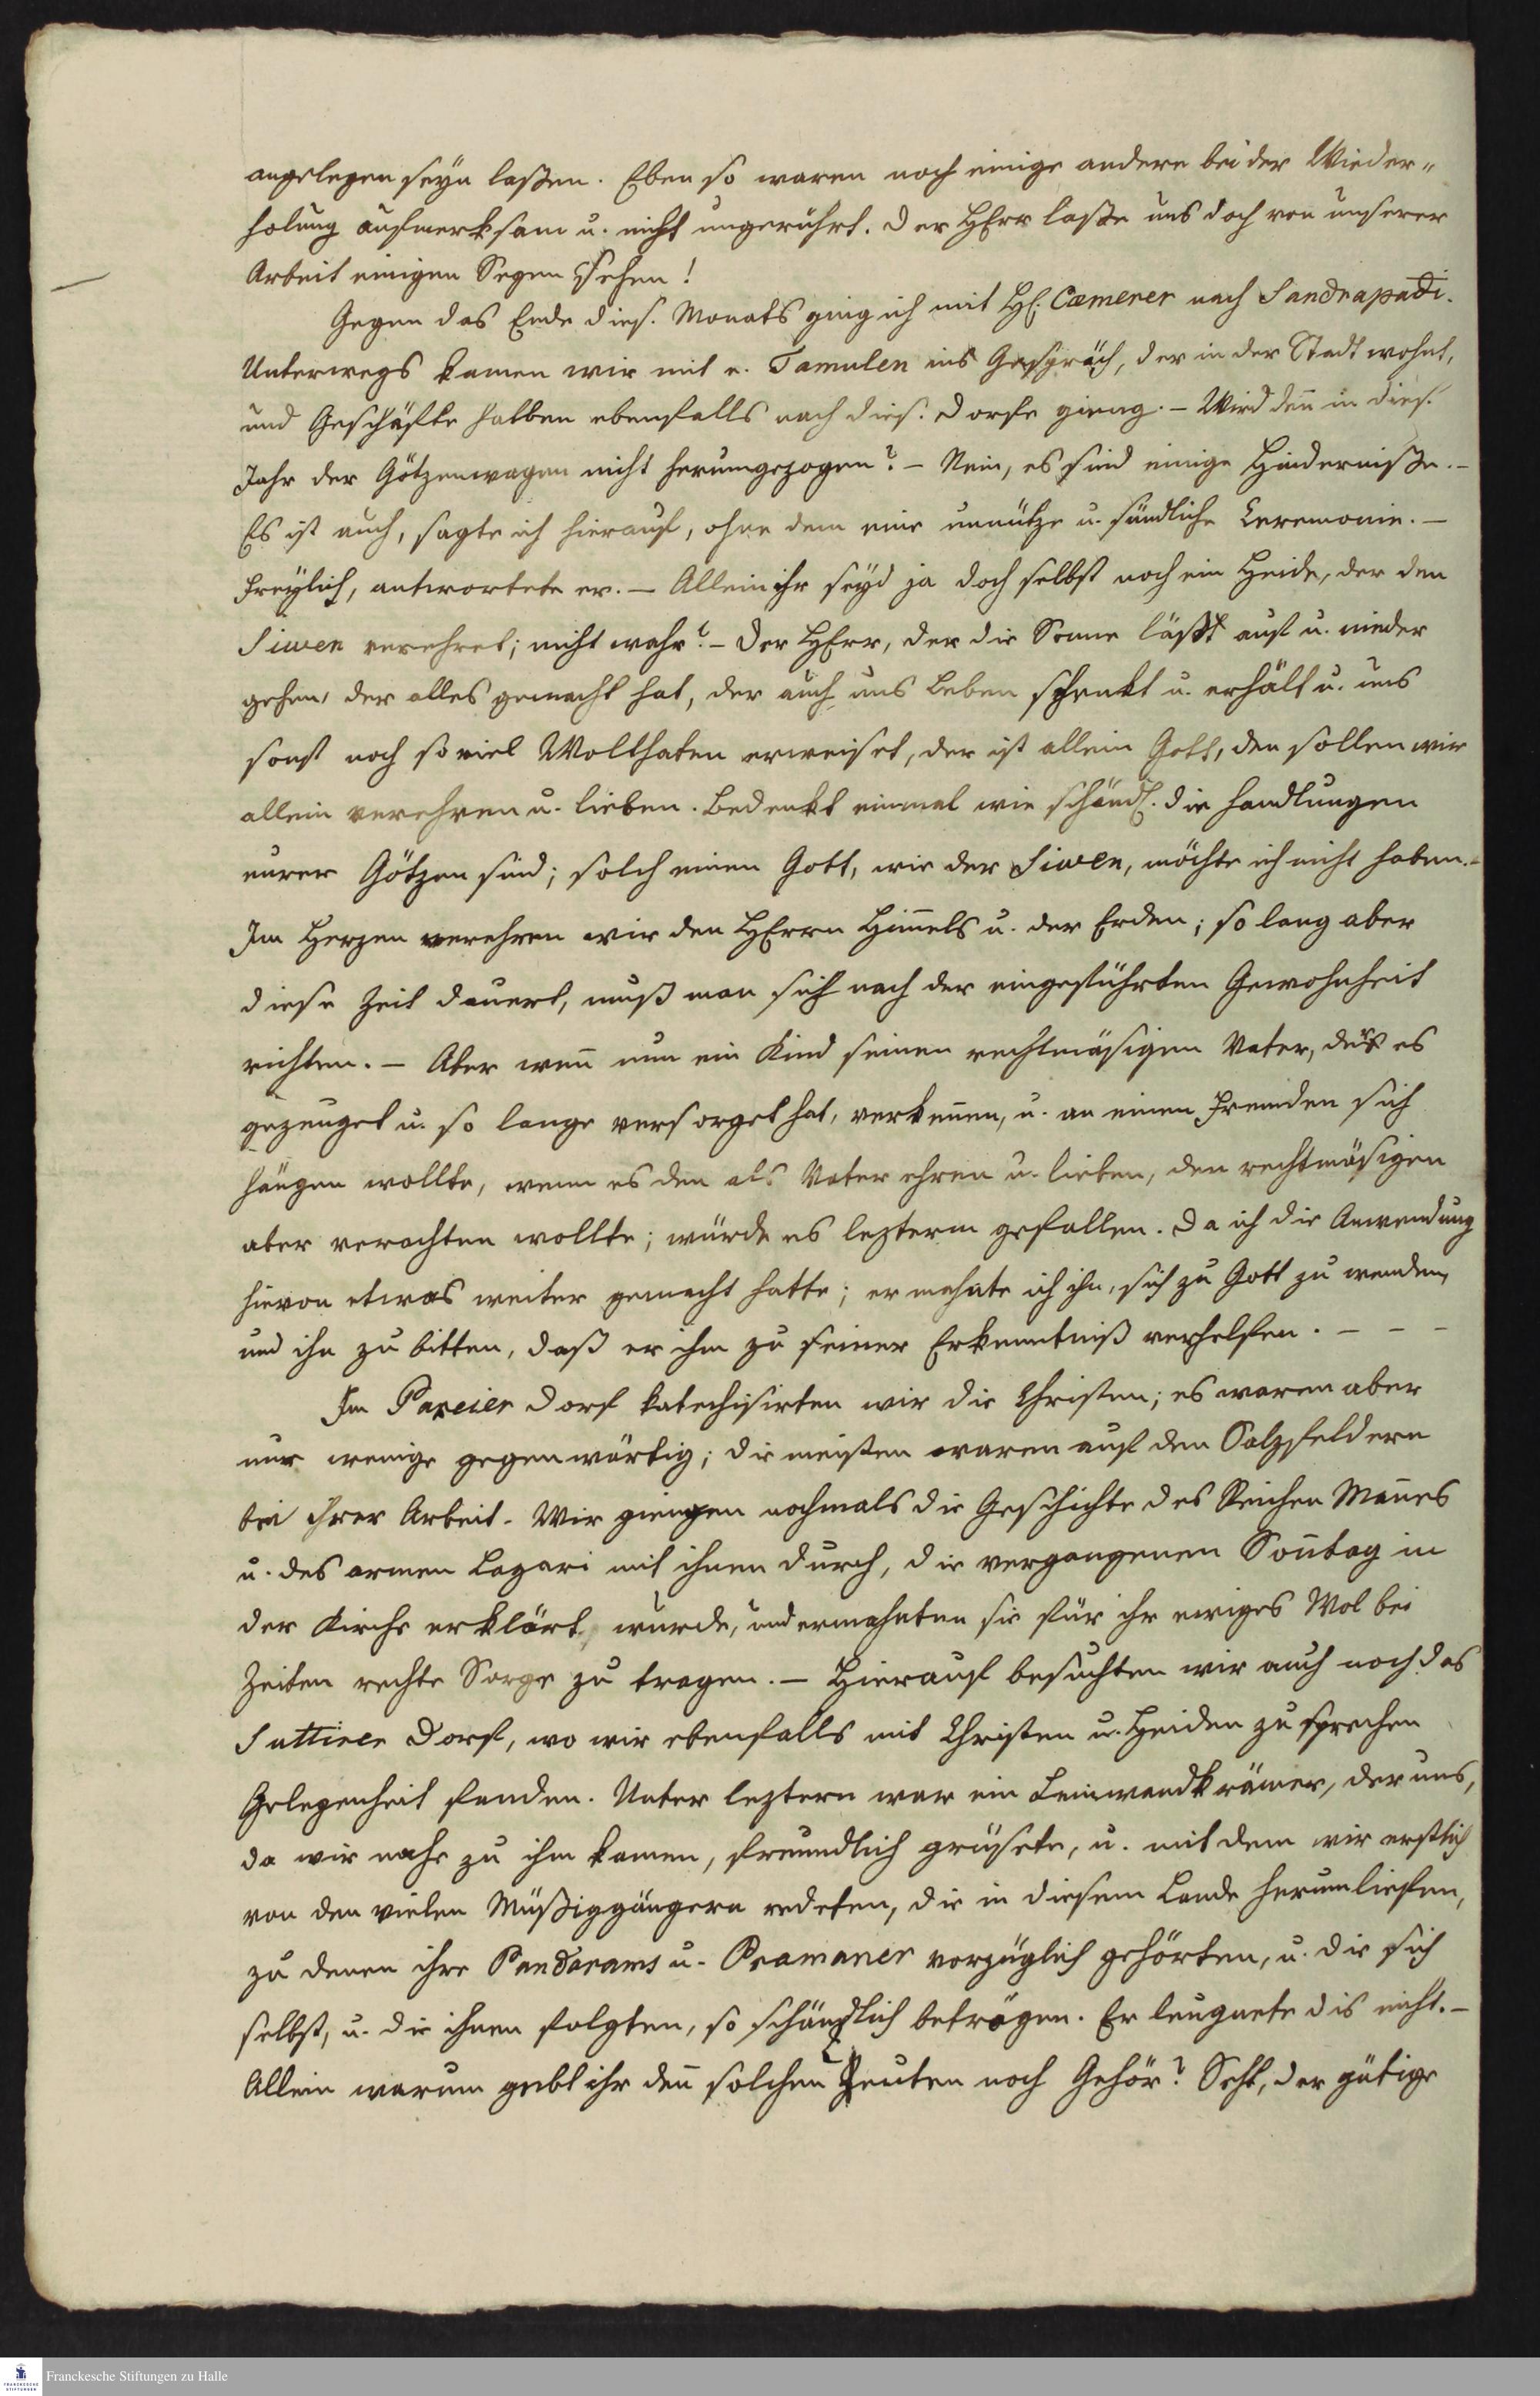 angelegen seyn laßen. Eben so waren noch einige andere bei der Wieder„
holung aufmerksam u. nicht ungerührt. Der HErr laße uns doch von unserer
Arbeit einigen Segen sehen!
Gegen das Ende dies. Monats ging ich mit H. Cæmerer nach Sandrapadi.
Unterwegs kamen wir mit e. Tamulen ins Gespräch, der in der Stadt wohnt,
und Geschäfte halben ebenfalls nach dies. Dorfe gieng. – Wird deñ in dies.
Jahr der Götzenwagen nicht herumgezogen? – Nein, es sind einige Hinderniße. –
Es ist auch, sagte ich hierauf, ohne dem eine unnütze u. sündliche Ceremonie. –
Freylich, antwortete er. – Allein ihr seyd ja doch selbst noch ein Heide, der den
Siwen verehret; nicht wahr? – Der HErr, der die Sonne läßt auf u. nieder
gehen, der alles gemacht hat, der auch uns Leben schenkt u. erhält u. uns
sonst noch so viel Wolthaten erweiset, der ist allein Gott, den sollen wir
allein verehren u. lieben. Bedenkt einmal wie schändl. die Handlungen
eurer Götzen sind; solch einen Gott, wie der Siwen, möchte ich nicht haben. –
Im Herzen verehren wir den HErrn Him̄els u. der Erden; so lang aber
diese Zeit dauert, muß man sich nach der eingeführten Gewohnheit
richten. – Aber weñ nun ein Kind seinen rechtmäsigen Vater, der es
gezeuget u. so lange versorget hat, verkeñen, u. an einen Fremden sich
hängen wollte, wenn es den als Vater ehren u. lieben, den rechtmäsigen
aber verachten wollte; würde es lezterm gefallen. Da ich die Anwendung
hievon etwas weiter gemacht hatte; ermahnte ich ihn, sich zu Gott zu wenden,
und ihn zu bitten, daß er ihm zu seiner Erkenntniß verhelfen. – – –
Im Pareier Dorf katechisirten wir die Christen; es waren aber
nur wenige gegenwärtig; die meisten waren auf den Salzfeldern
bei ihrer Arbeit. Wir giengen nochmals die Geschichte des Reichen Mañes
u. des armen Lazari mit ihnen durch, die vergangenen Soñtag in
der Kirche erklärt wurde, und ermahnten sie für ihr ewiges Wol bei
Zeiten rechte Sorge zu tragen. – Hierauf besuchten wir auch noch das
Suttirer Dorf, wo wir ebenfalls mit Christen u. Heiden zu sprechen
Gelegenheit fanden. Unter leztern war ein Leinwandkrämer, der uns,
da wir nahe zu ihm kamen, freundlich grüsete, u. mit dem wir erstlich
von den vielen Müßiggängern redeten, die in diesem Lande herumliefen,
zu denen ihre Pandarams u. Bramaner vorzüglich gehörten, u. die sich
selbst, u. die ihnen folgten, so schändlich betrögen. Er leugnete dis nicht. –
Allein warum gebt ihr deñ solchen Leuten noch Gehör? Seht, der gütige
Franckesche Stiftungen zu Halle